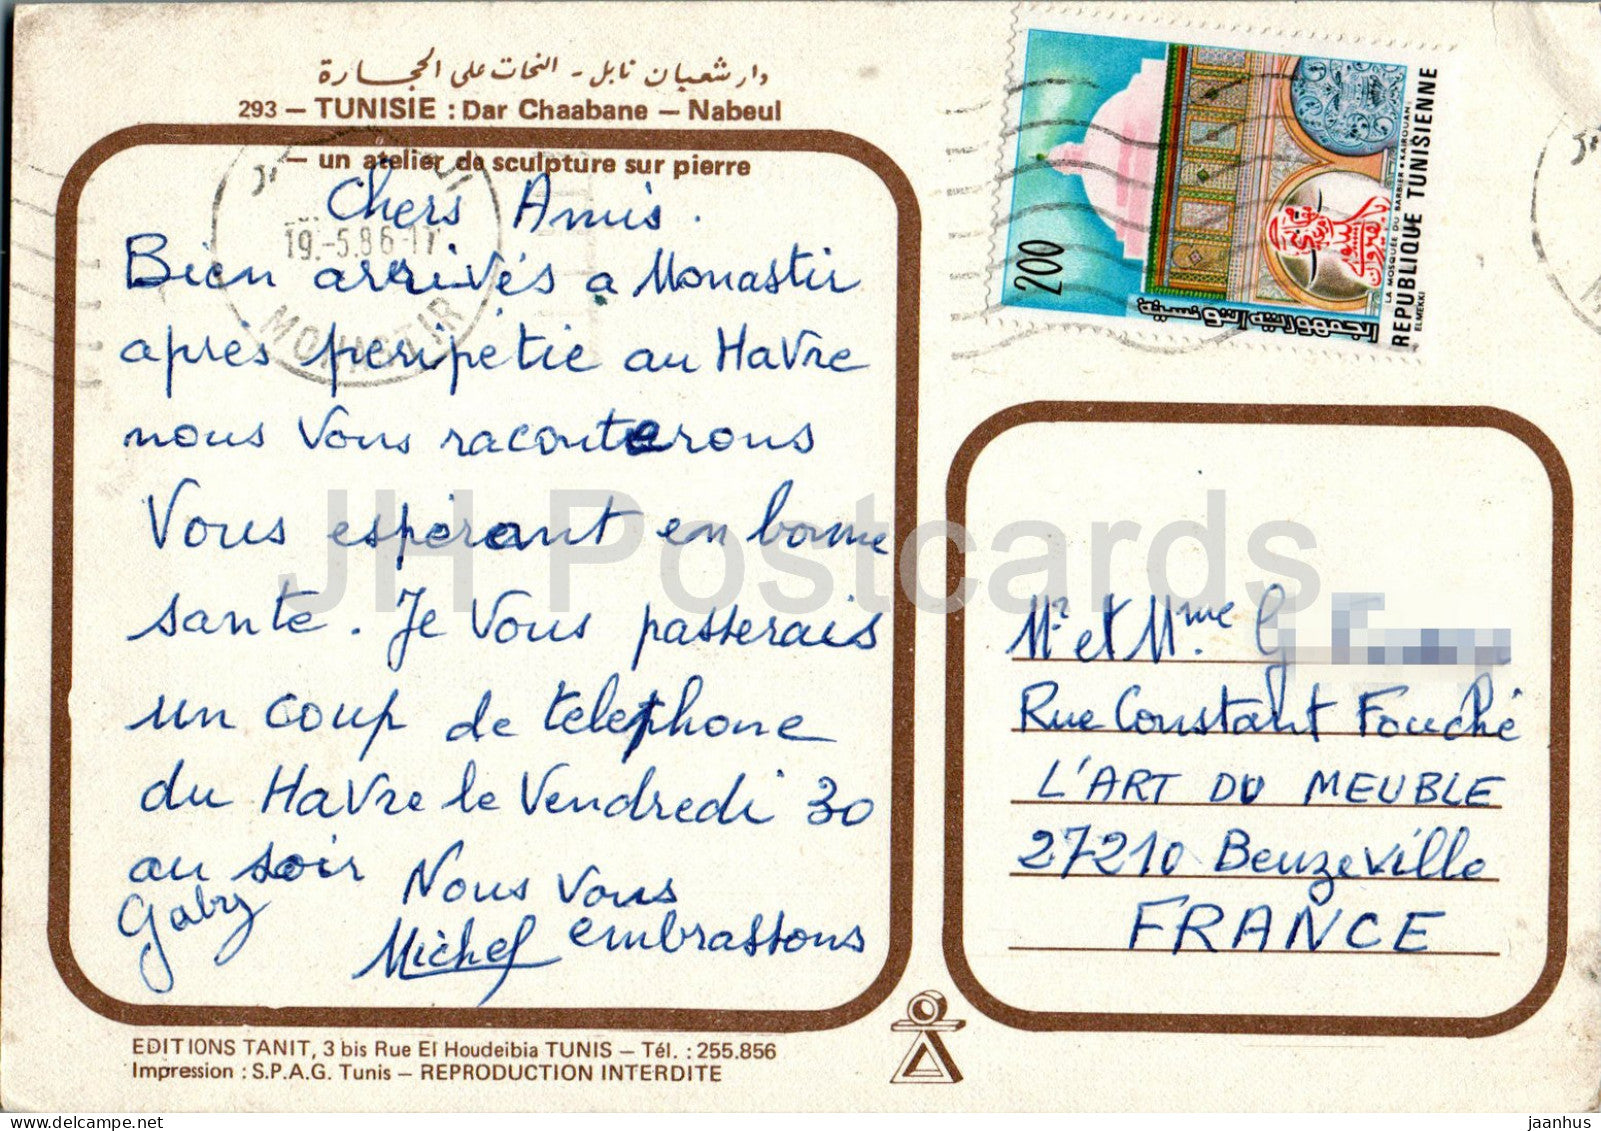 دار شعبان نابل - النحات على الحجارة
293 – TUNISIE : Dar Chaabane – Nabeul
– un atelier de sculpture sur pierre
Chers Amis.
Bien arrivés a Monastir
après peripétie au HaVre
nous Vous raconterons
Vous espérant en bonne
santé. Je Vous passerais
un coup de telephone
du HaVre le Vendredi 30
au soir Nous Vous
embrassons
Gaby Michel
19.-5.86-17
MONASTIR
200
الجمهورية التونسية
REPUBLIQUE TUNISIENNE
LA MOSQUÉE DU BARBIER • KAIROUAN
ELMEKKI
Mr et Mme. G
Rue Constant Fouché
L'ART DU MEUBLE
27210 Beuzeville
FRANCE
EDITIONS TANIT, 3 bis Rue El Houdeibia TUNIS – Tél. : 255.856
Impression : S.P.A.G. Tunis – REPRODUCTION INTERDITE
JH Postcards
jaanhus // delcampe.net